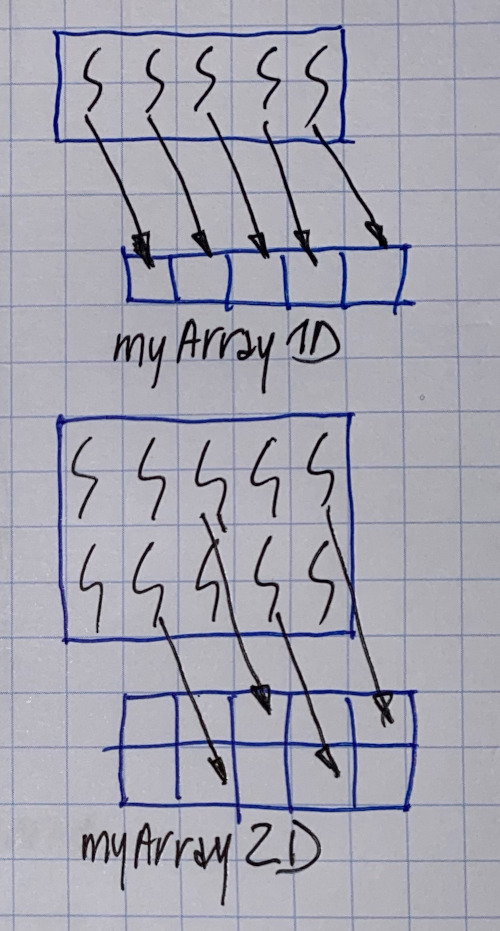 myArray 1D
myArray 2D